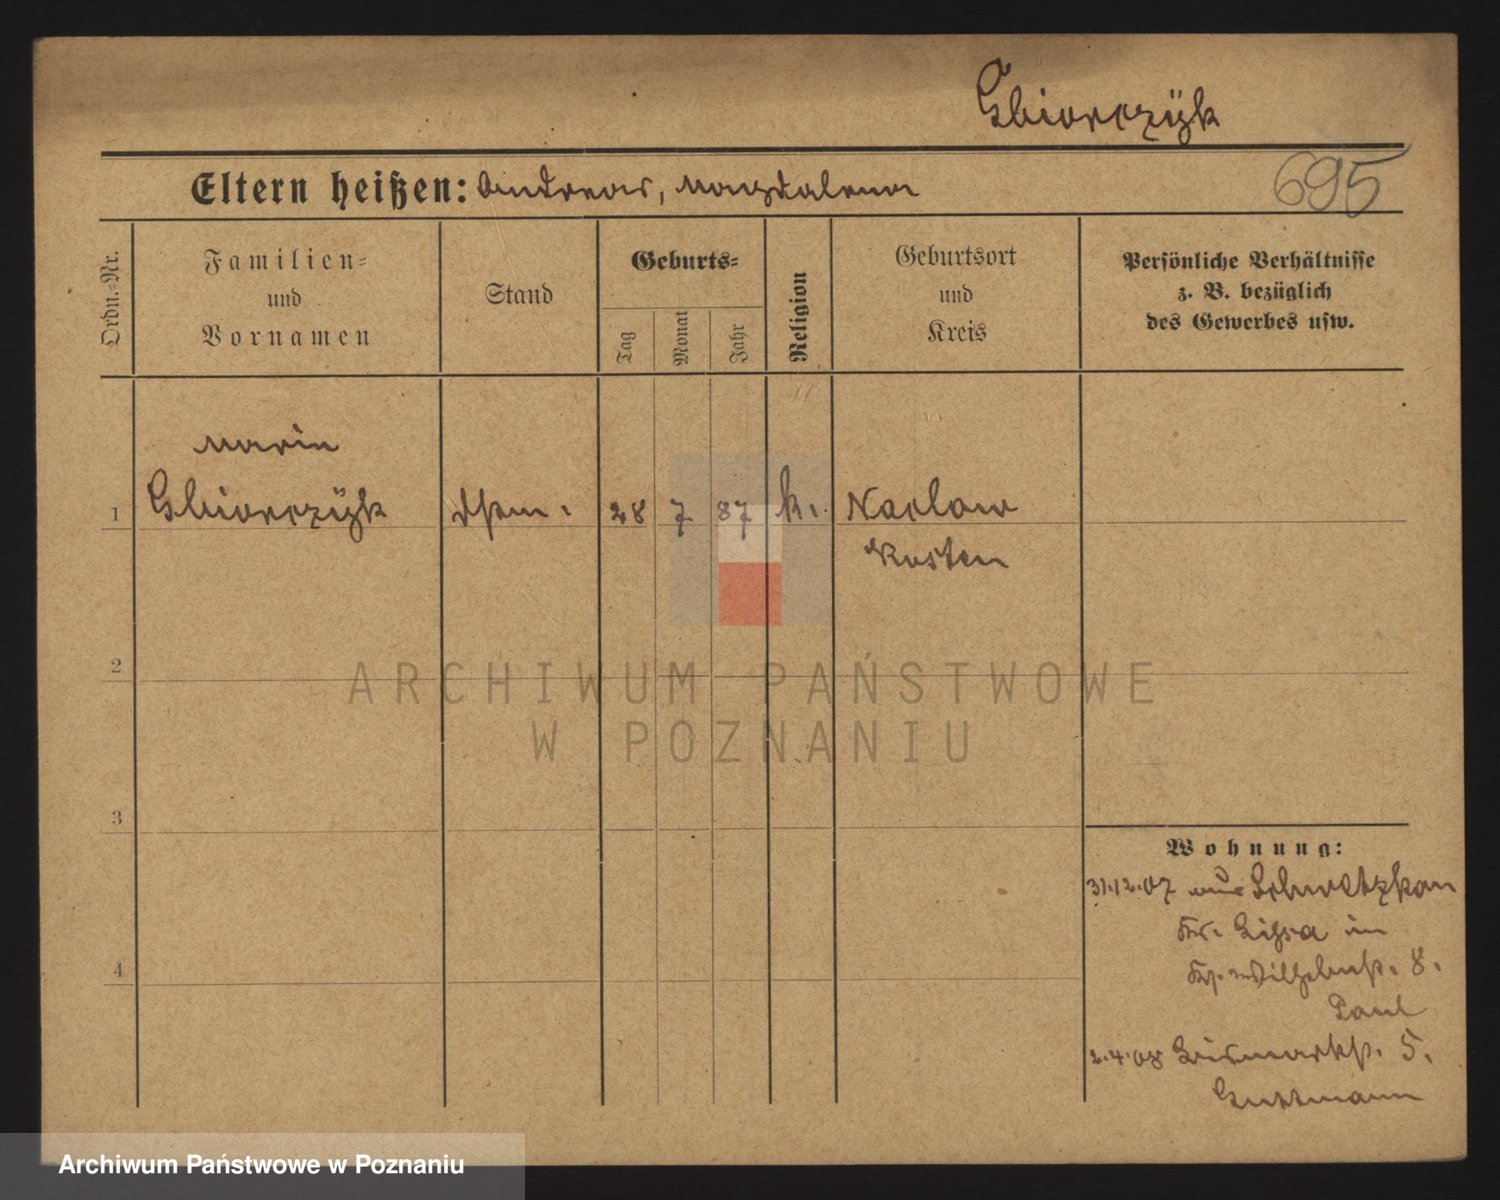 Gbiorczÿk
Eltern heißen: Andreas, Magdalena
695
Ordn.-Nr.
Familien-
und
Vornamen
Stand
Geburts-
Tag
Monat
Jahr
Religion
Geburtsort
und
Kreis
Persönliche Verhältnisse
z. B. bezüglich
des Gewerbes usw.
Marie
1 Gbiorczÿk 28 7 87 k. Naclaw
Kosten
2
3
4
Wohnung:
31.12.07 aus Schwetzkau
Kr. Lissa in
Wilhelmstr. 8.
Paul
2.4.08 Bismarkstr. 5.
Guttmann
ARCHIWUM PAŃSTWOWE
W POZNANIU
Archiwum Państwowe w Poznaniu